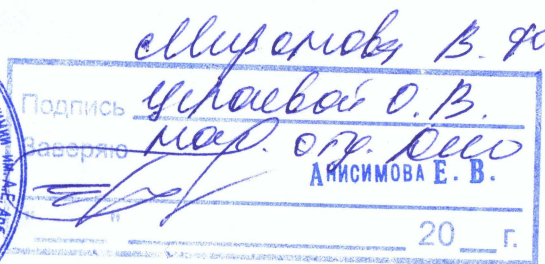 Миронова В. Ф
Подпись Цраевой О. В.
Заверяю нач. отд.
АНИСИМОВА Е. В.
" "
20 г.